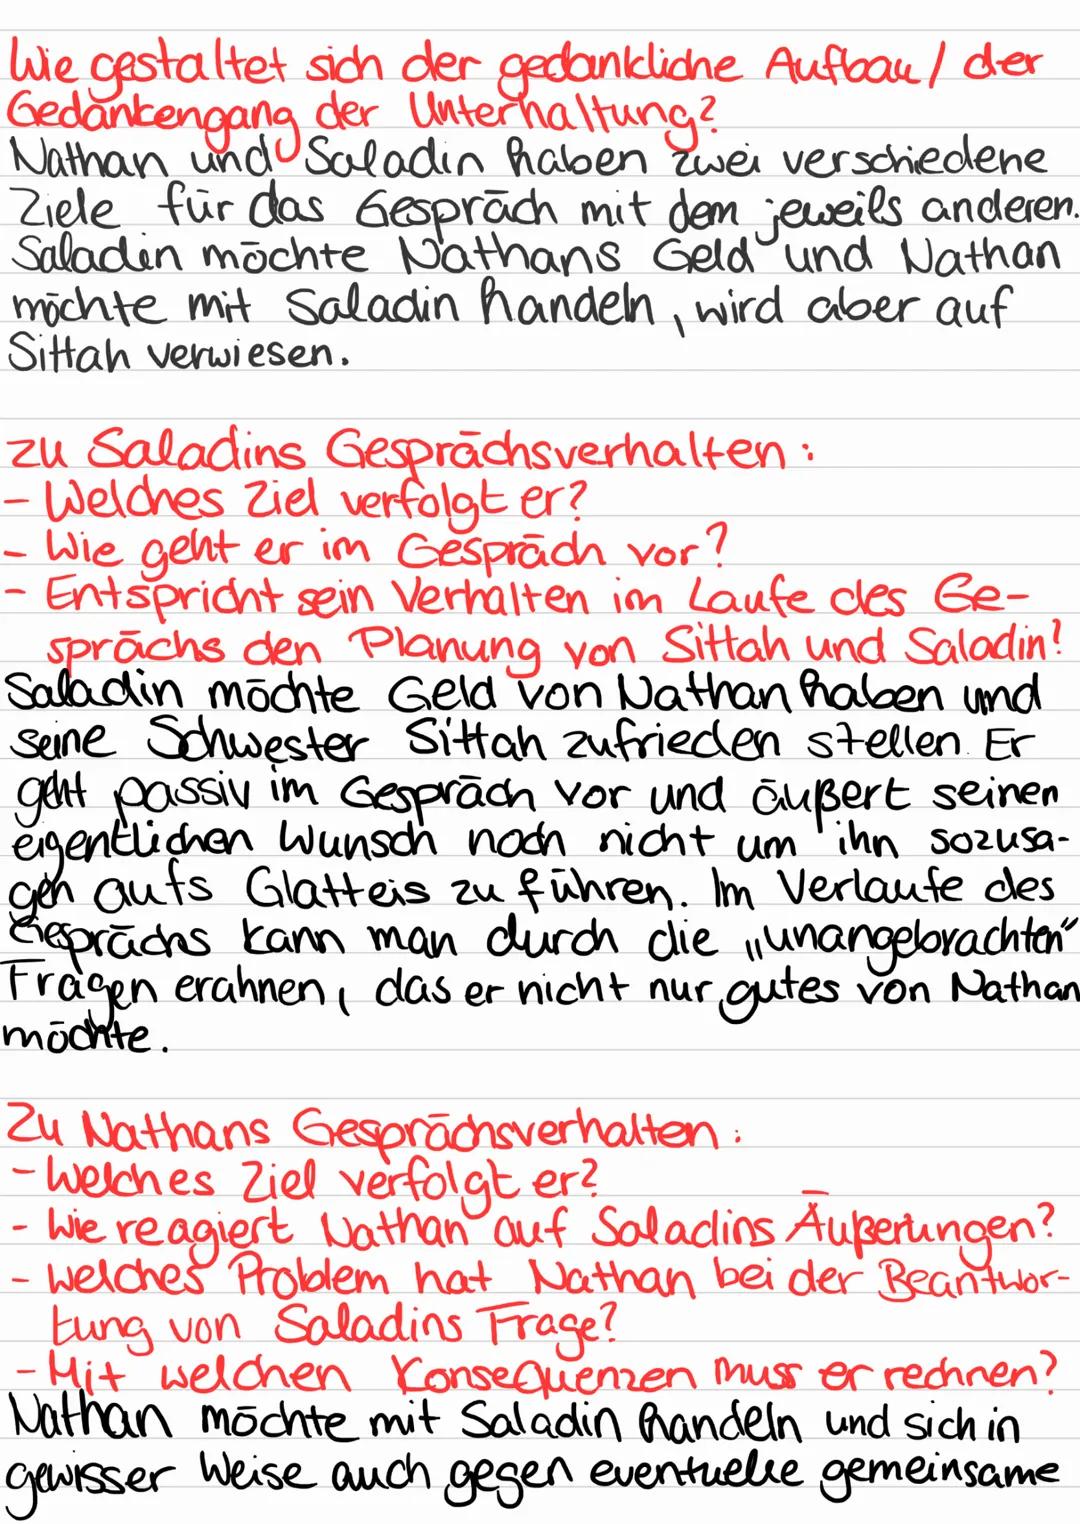 Wie gestaltet sich der gedankliche Aufbau / der
Gedankengang der Unterhaltung?
Nathan und Saladin haben zwei verschiedene
Ziele für das Gespräch mit dem jeweils anderen.
Saladin möchte Nathans Geld und Nathan
möchte mit Saladin handeln, wird aber auf
Sittah verwiesen.
zu Saladins Gesprächsverhalten:
- Welches Ziel verfolgt er?
- Wie geht er im Gespräch vor?
- Entspricht sein Verhalten im Laufe des Ge-
sprächs den Planung von Sittah und Saladin?
Saladin möchte Geld von Nathan haben und
seine Schwester Sittah zufrieden stellen. Er
geht passiv im Gespräch vor und äußert seinen
eigentlichen Wunsch noch nicht um ihn sozusa-
gen aufs Glatteis zu führen. Im Verlaufe des
Gesprächs kann man durch die „unangebrachten"
Fragen erahnen, das er nicht nur gutes von Nathan
möchte.
Zu Nathans Gesprächsverhalten:
- Welches Ziel verfolgt er?
- Wie reagiert Nathan auf Saladins Äußerungen?
- Welches Problem hat Nathan bei der Beantwor-
tung von Saladins Frage?
- Mit welchen Konsequenzen muss er rechnen?
Nathan möchte mit Saladin handeln und sich in
gewisser Weise auch gegen eventuelle gemeinsame